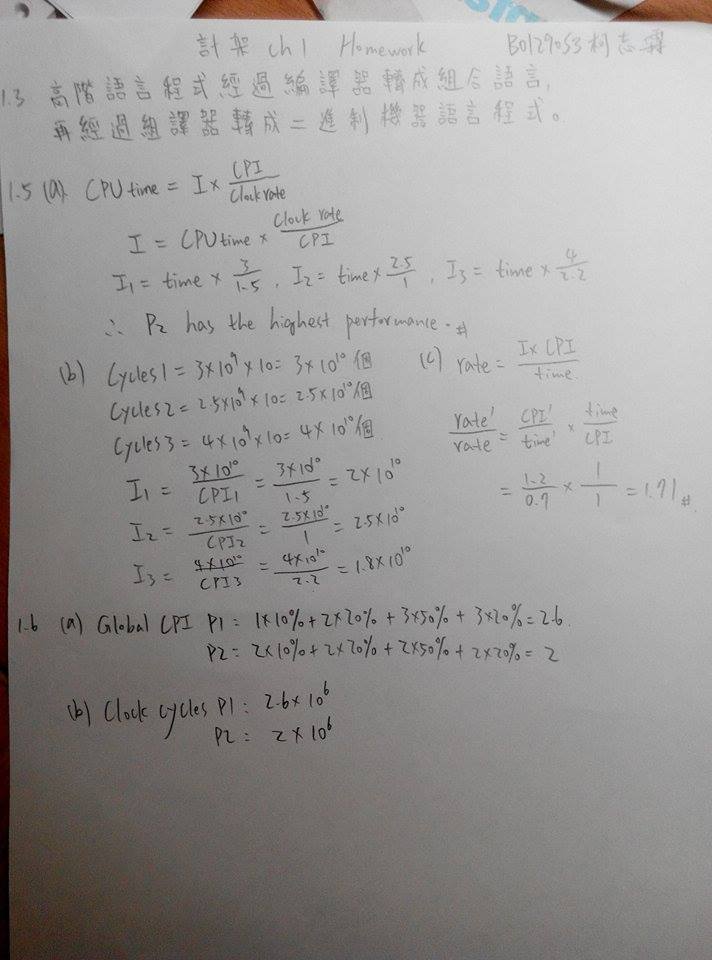 計架 ch1 Homework B0129053 柯志霖
1.3 高階語言程式經過編譯器轉成組合語言,
再經過組譯器轉成二進制機器語言程式。
1.5 (a) CPU time = I × CPI / Clock rate
I = CPU time × Clock rate / CPI
I1 = time × 3/1.5 , I2 = time × 2.5/1 , I3 = time × 4/2.2
∴ P2 has the highest performance. #
(b) Cycles1 = 3×10⁹×10 = 3×10¹⁰個
Cycles2 = 2.5×10⁹×10 = 2.5×10¹⁰個
Cycles3 = 4×10⁹×10 = 4×10¹⁰個
I1 = 3×10¹⁰ / CPI1 = 3×10¹⁰ / 1.5 = 2×10¹⁰
I2 = 2.5×10¹⁰ / CPI2 = 2.5×10¹⁰ / 1 = 2.5×10¹⁰
I3 = 4×10¹⁰ / CPI3 = 4×10¹⁰ / 2.2 = 1.8×10¹⁰
(c) rate = I×CPI / time
rate' / rate = CPI' / time' × time / CPI
= 1.2/0.7 × 1/1 = 1.71 #
1.6 (a) Global CPI P1 = 1×10%+2×20%+3×50%+3×20%=2.6
P2 = 2×10%+2×20%+2×50%+2×20%=2
(b) Clock cycles P1 = 2.6×10⁶
P2 = 2×10⁶